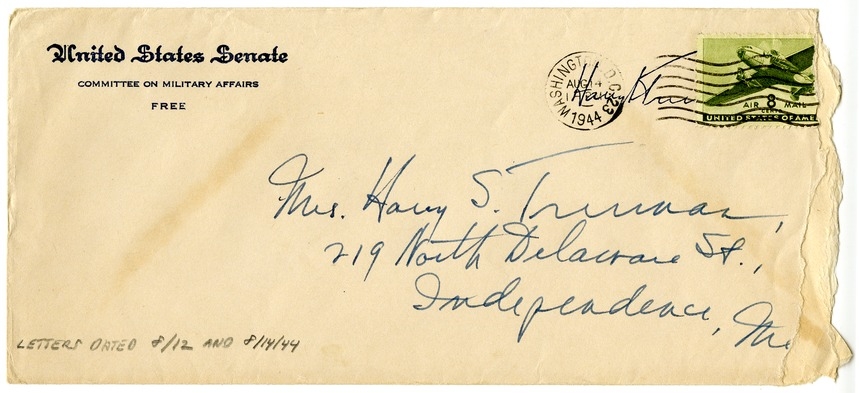 United States Senate
COMMITTEE ON MILITARY AFFAIRS
FREE
WASHINGTON, D.C. 23
AUG 14
1944
Harry
AIR 8 MAIL
CENTS
UNITED STATES OF AME
Mrs. Harry S. Truman,
219 North Delaware St.,
Independence, Mo
LETTERS DATED 8/12 AND 8/14/44